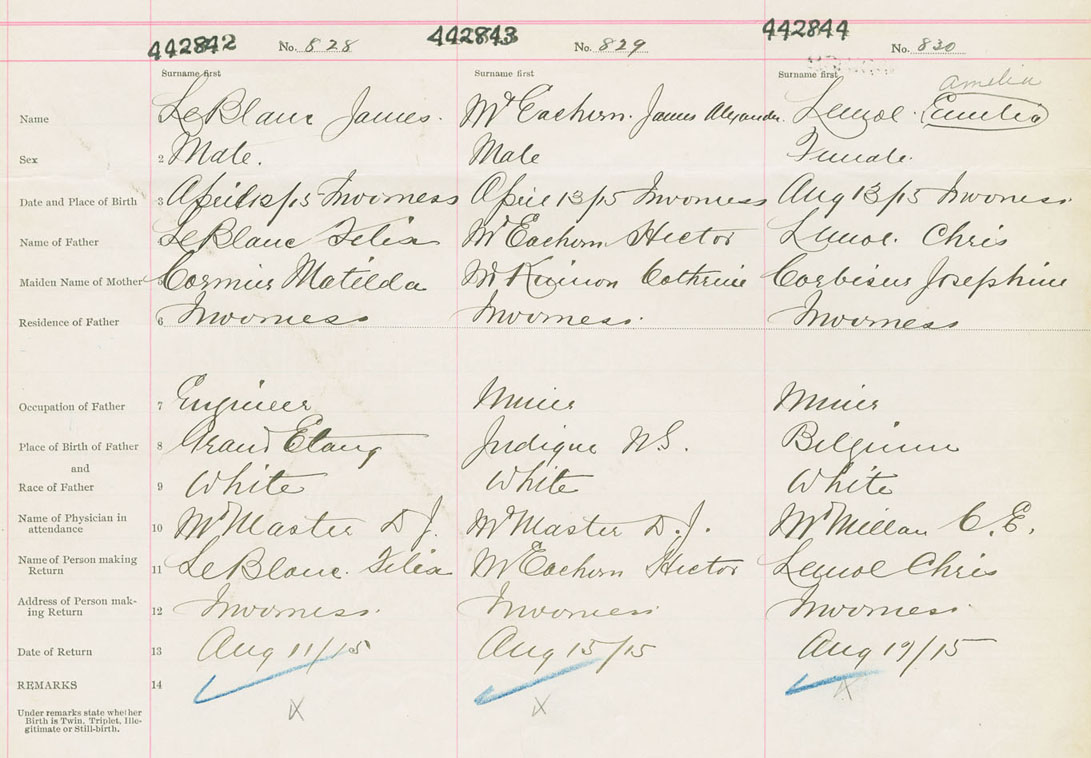 442842 442843 442844
No. 828 No. 829 No. 830
Surname first Surname first Surname first
Amelia
Name LeBlanc James. McEachern. James Alexander. Lemol. Emelia
Sex 2 Male. Male Female.
Date and Place of Birth 3 April 12/15 Inverness April 13/15 Inverness Aug 13/15 Inverness.
Name of Father LeBlanc Felix McEachern Hector Lemol. Chris
Maiden Name of Mother 5 Cormier Matilda McKinnon Catherine Josephine
Residence of Father 6 Inverness Inverness. Inverness
Occupation of Father 7 Engineer Miner Miner
Place of Birth of Father 8 Grand Etang Judique N.S. Belgium
and
Race of Father 9 White White White
Name of Physician in
attendance 10 McMaster D J. McMaster D.J. McMillan C.E.
Name of Person making
Return 11 LeBlanc. Felix McEachern Hector Lemol Chris
Address of Person mak-
ing Return 12 Inverness. Inverness. Inverness.
Date of Return 13 Aug 11/15 Aug 15/15 Aug 19/15
REMARKS 14
X X X
Under remarks state whether
Birth is Twin, Triplet, Ille-
gitimate or Still-birth.